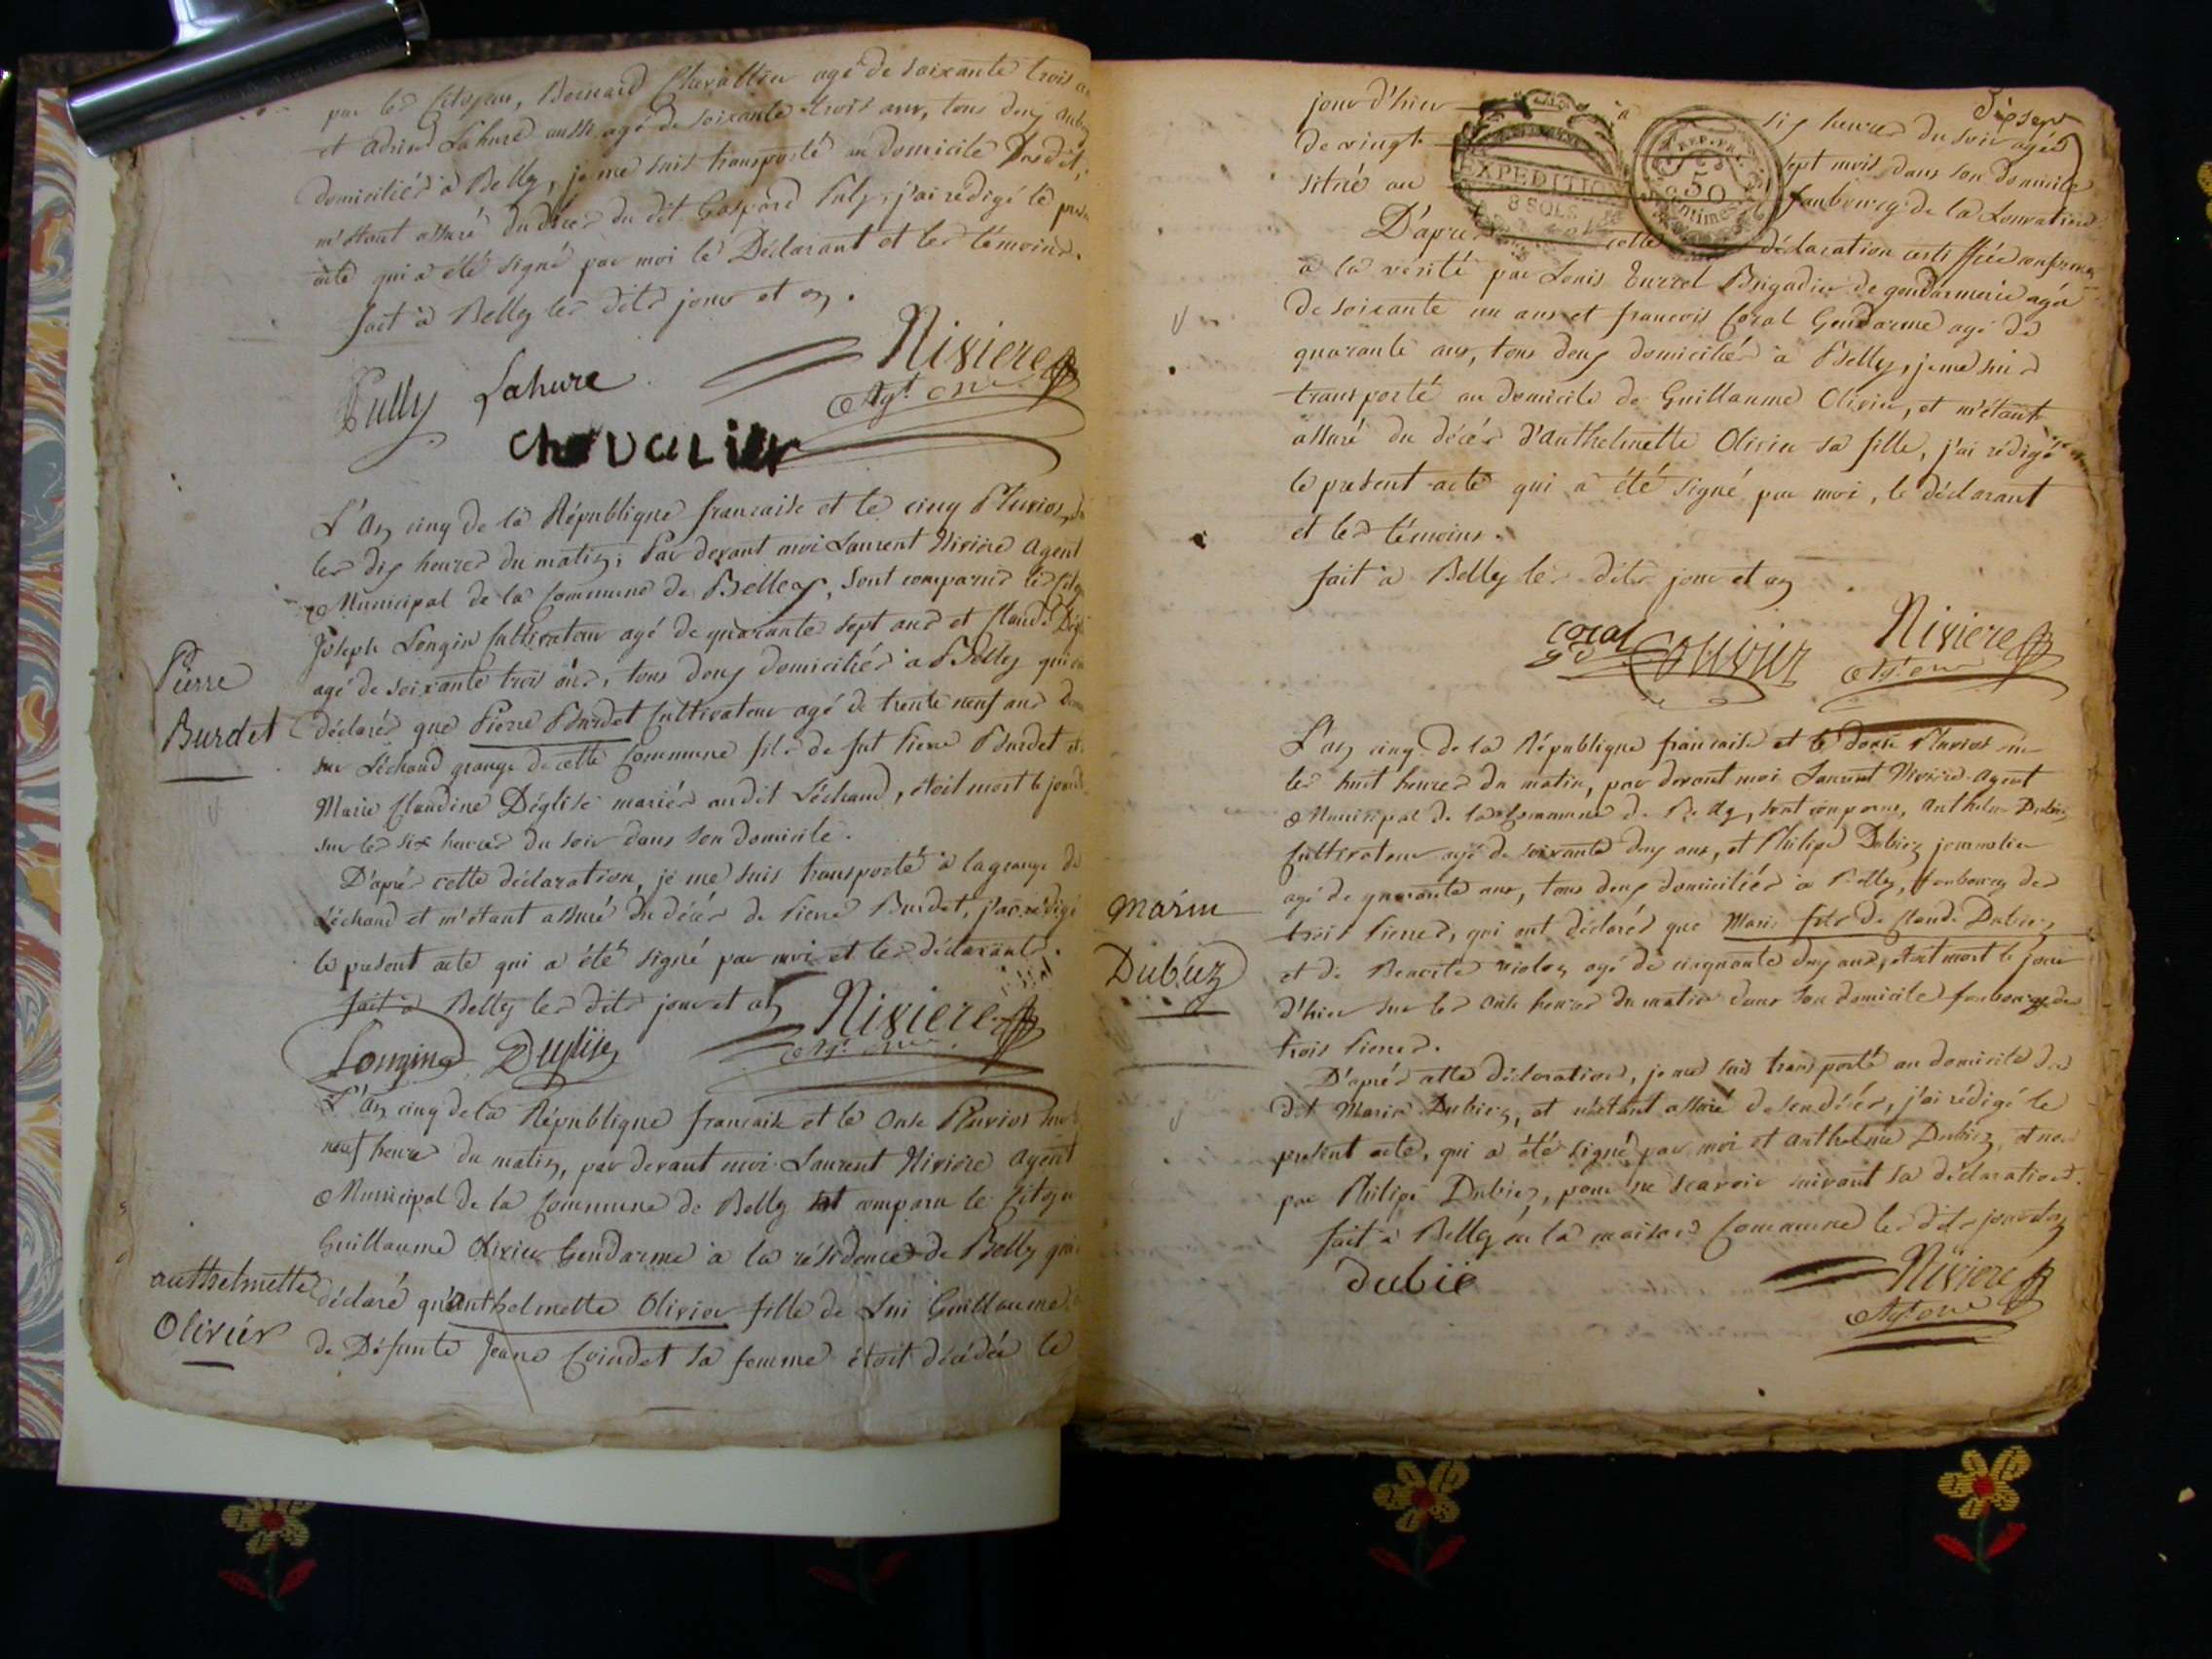 par les Citoyens, Bernard Chevallier agé de soixante trois
et Adrien Lahure aussi agé de soixante trois ans, tous deux
domiciliés a Belley, je me suis transporté au domicile dudit,
m'étant assuré du décès du dit Gaspard Pully, j'ai redigé le
acte qui a été signé par moi le Déclarant et les témoins.
fait à Belley les dits jour et an.
Riviere
Agt
Pully Lahure
chevalier
L'An cinq de la République francaise et le cinq Pluviose
les dix heures du matin; Par devant moi Laurent Rivière Agent
Municipal de la Commune de Belley, sont comparus les
Joseph Longin Cultivateur agé de quarante sept ans et Claude
agé de soixante trois ans, tous deux domiciliés a Belley qui
Pierre
Burdet
déclarés que Pierre Burdet Cultivateur agé de trente neuf ans
sur Léchaud grange de cette Commune fils de fut Pierre Burdet et
Marie Claudine Déglise mariés au dit Léchaud, étoit mort le
sur les six heures du soir dans son domicile.
D'après cette déclaration, je me suis transporté à la grange de
Léchaud et m'étant assuré du décès de Pierre Burdet, j'ai rédigé
le present acte qui a été signé par moi et les déclarants.
fait à Belley les dits jour et an
Longin Riviere
Agt
L'An cinq de la République francaise et le Onze Pluviose
neuf heures du matin, par devant moi Laurent Rivière Agent
Municipal de la Commune de Belley est comparu le Citoyen
Guillaume Olivier Gendarme à la résidence de Belley qui
authelmette
Olivier
déclaré qu'Anthelmette Olivier fille de Lui Guillaume
de Défunte Jeane Coindet sa femme étoit décédée le
Dixsept
jour d'hier à six heures du soir agée
de vingt sept mois dans son domicile
situé au faubourg de la
EXPEDITION
8 SOLS
REP. FRA.
50
centimes
D'après cette déclaration certiffiée conforme
a la vérité par Louis Turrel Brigadier de gendarmerie agé
de soixante un ans et francois Coral Gendarme agé de
quarante ans, tous deux domiciliés à Belley, je me suis
transporté au domicile de Guillaume Olivier, et m'étant
assuré du décès d'Anthelmette Olivier sa fille, j'ai rédigé
le present acte qui a été signé par moi, le déclarant
et les témoins.
fait à Belley les dits jour et an
coral Olivier Riviere
Agt
L'an cinq de la République francaise et le douze Pluviose
les huit heures du matin, par devant moi Laurent Rivière Agent
Municipal de la Commune de Belley, sont comparus, Anthelme Dubiez
Cultivateur agé de soixante deux ans, et Philipe Dubiez journalier
agé de quarante ans, tous deux domiciliés à Belley, faubourg des
marin
Dubiez
trois Pierres, qui ont déclarés que Marin fils de Claude Dubiez
et de Benoite agé de cinquante deux ans, étoit mort le jour
d'hier sur les onze heures du matin dans son domicile faubourg des
trois Pierres.
D'après cette déclaration, je me suis transporté au domicile du
dit Marin Dubiez, et m'étant assuré de son décès, j'ai rédigé le
présent acte, qui a été signé par moi et Anthelme Dubiez, et non
par Philipe Dubiez, pour ne scavoir suivant sa déclaration.
fait à Belley en la maison Commune les dits jour et an
dubié Riviere
Agt